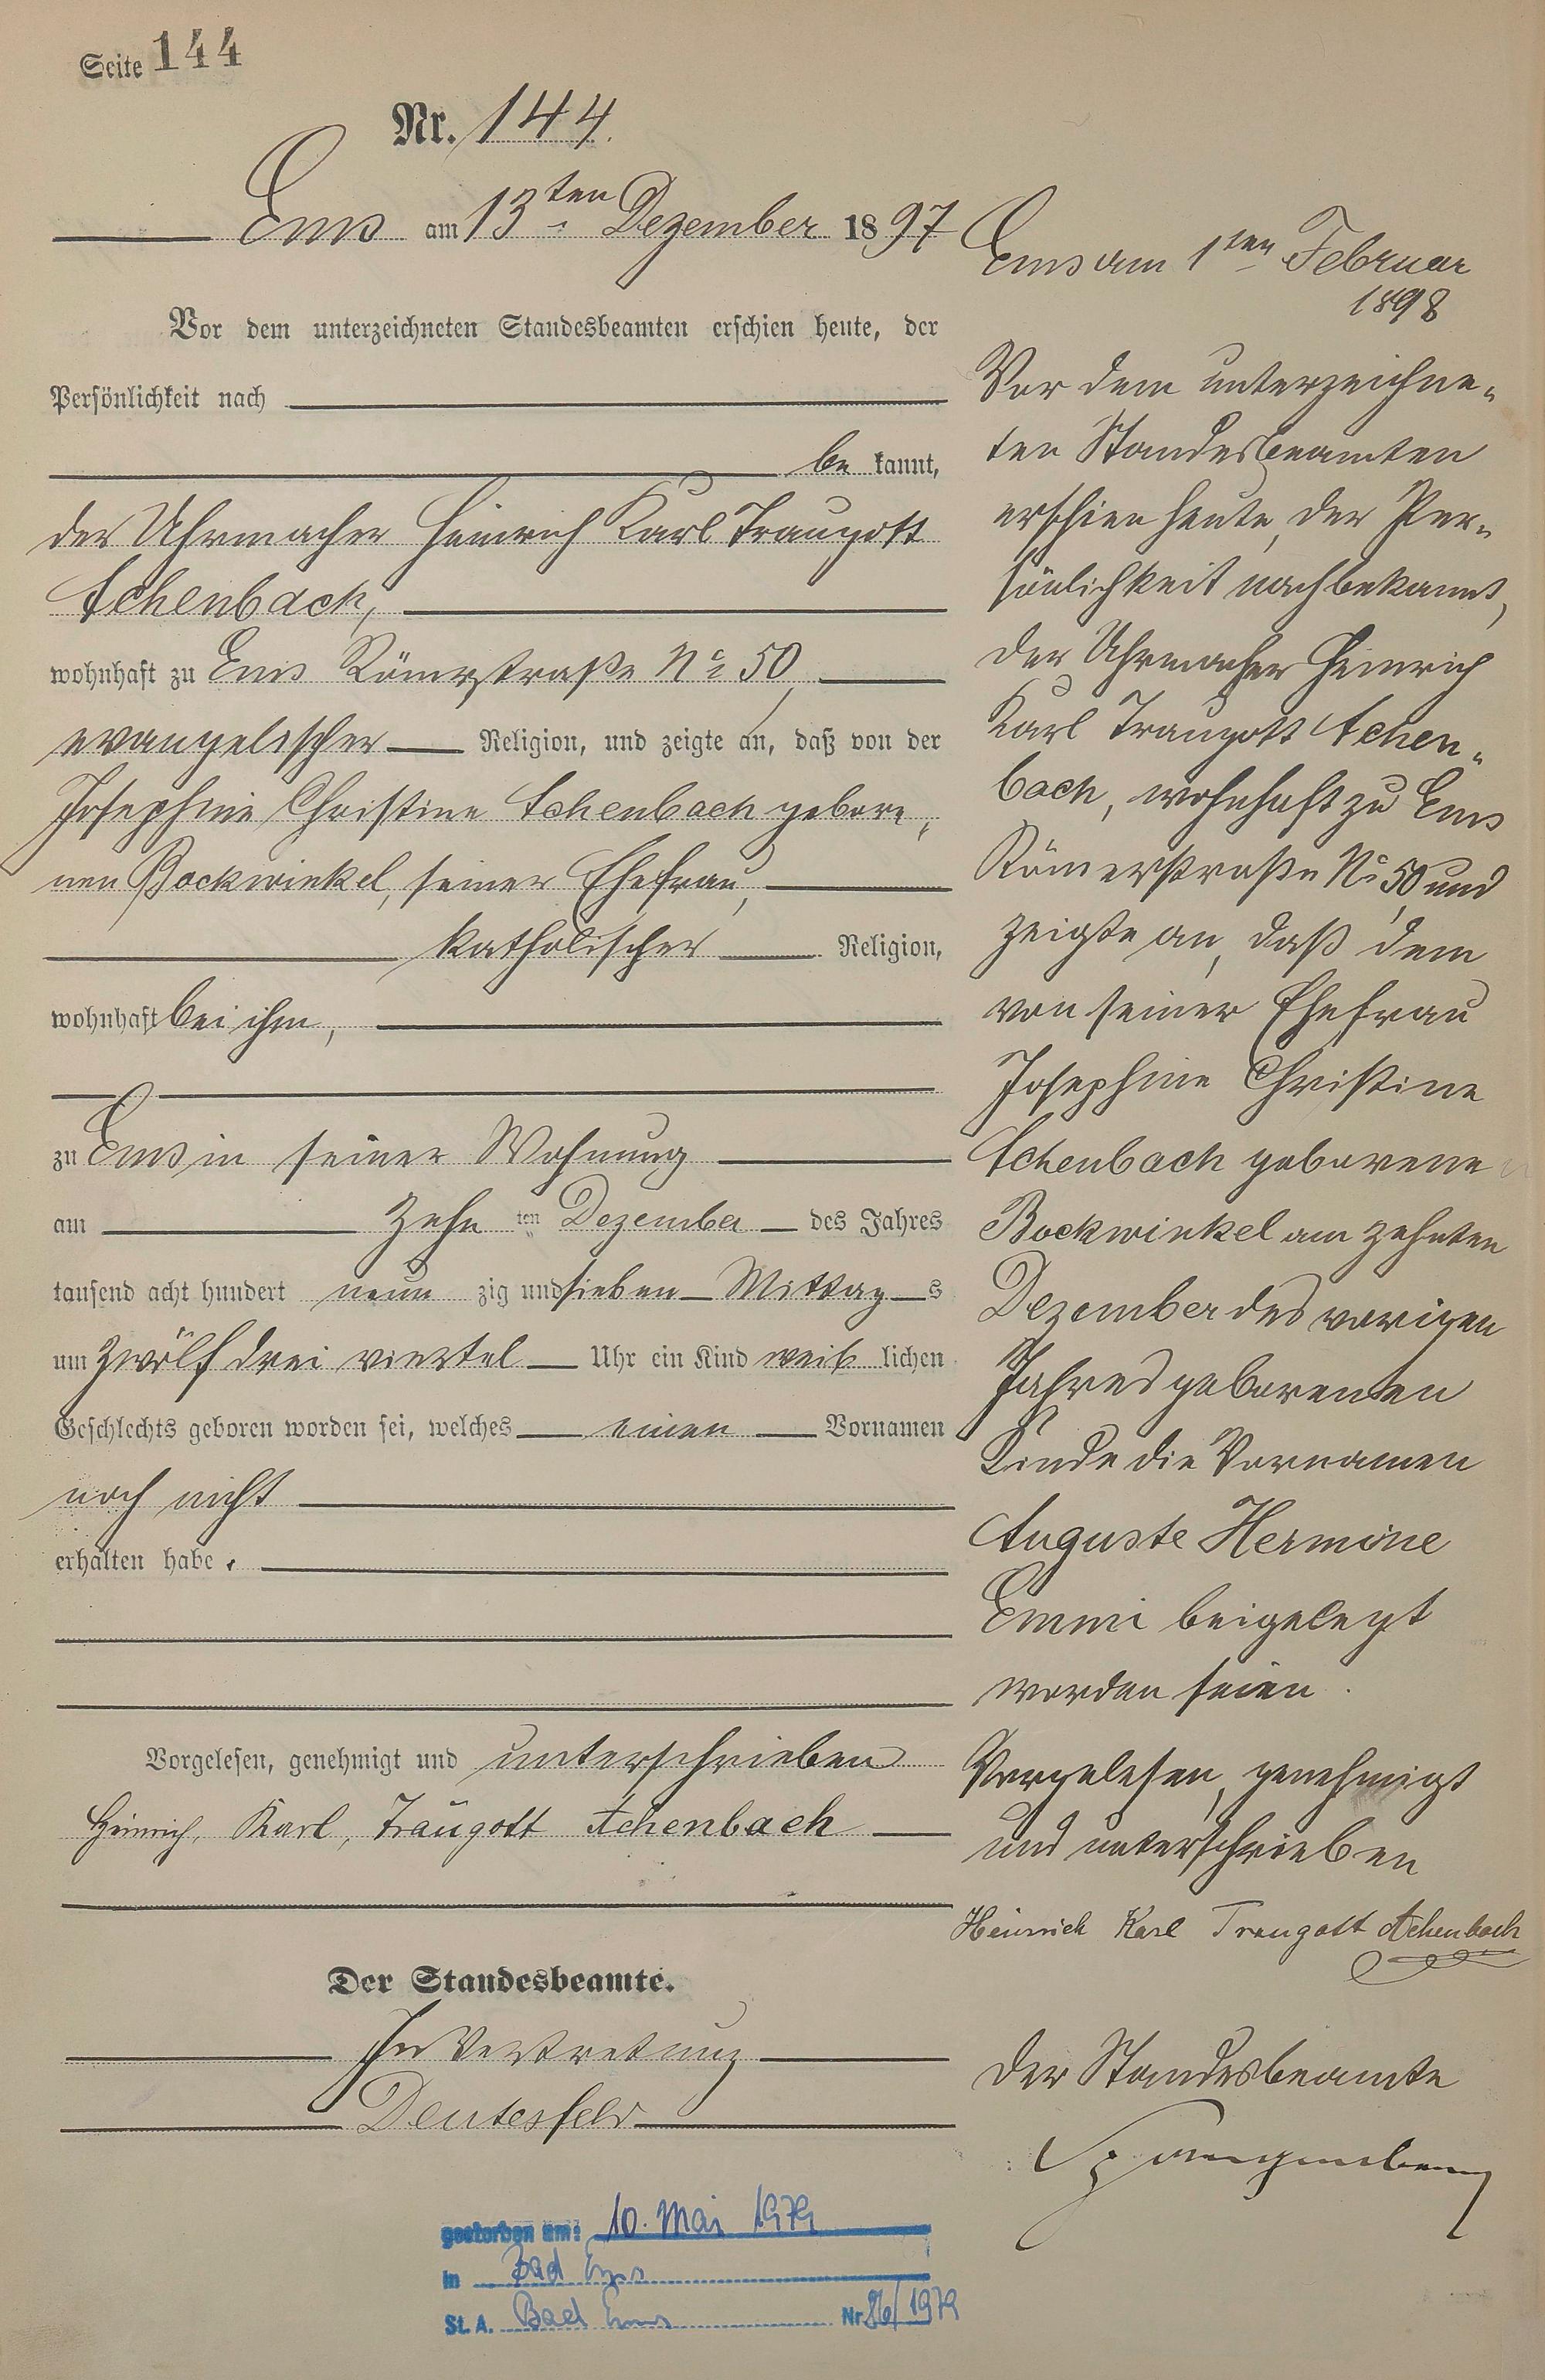 Seite 144
Nr. 144.
Ems am 13ten Dezember 1897
Vor dem unterzeichneten Standesbeamten erschien heute, der
Persönlichkeit nach
be kannt,
der Uhrmacher Heinrich Karl Traugott
Achenbach,
wohnhaft zu Ems Römerstraße No 50,
evangelischer Religion, und zeigte an, daß von der
Josephine Christine Achenbach gebore„
nen Bockwinkel, seiner Ehefrau,
katholischer Religion,
wohnhaft bei ihm,
zu Ems in seiner Wohnung
am zehn ten Dezember des Jahres
tausend acht hundert neun zig und sieben Mittag s
um zwölf drei viertel Uhr ein Kind weib lichen
Geschlechts geboren worden sei, welches einen Vornamen
noch nicht
erhalten habe.
Vorgelesen, genehmigt und unterschrieben
Heinrich, Karl, Traugott Achenbach
Der Standesbeamte.
In Vertretung
Deutesfeld
gestorben am: 10. Mai 1979
in Bad Ems
St. A. Bad Ems Nr. 86/1979
Ems am 1ten Februar
1898
Vor dem unterzeichne„
ten Standesbeamten
erschien heute, der Per„
sönlichkeit nach bekannt,
der Uhrmacher Heinrich
Karl Traugott Achen„
bach, wohnhaft zu Ems
Römerstraße No 50, und
zeigte an, daß dem
von seiner Ehefrau
Josephine Christine
Achenbach geborene
Bockwinkel am zehnten
Dezember des vorigen
Jahres geborenen
Kinde die Vornamen
Auguste Hermine
Emmi beigelegt
worden seien.
Vorgelesen, genehmigt
und unterschrieben
Heinrich Karl Traugott Achenbach
Der Standesbeamte
Spangenberg